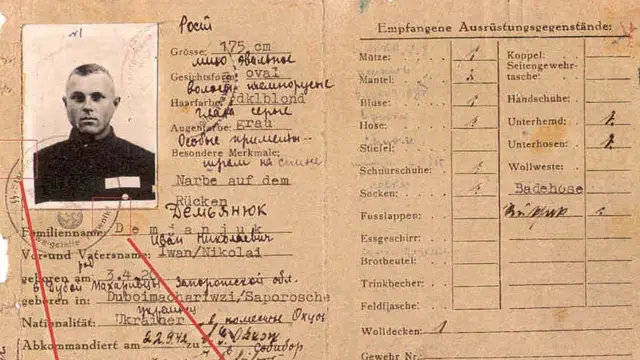 №1
Рост
Größe: 175 cm
лицо овальное
Gesichtsform: oval
волосы темнорусые
Haarfarbe: dklblond
глаза серые
Augenfarbe: grau
Особые приметы --
Besondere Merkmale:
шрам на спине
Narbe auf dem
Rücken
ДЕМЬЯНЮК
Familienname: Demjanjuk
Иван Николаевич
Vor- und Vatersname: Iwan/Nikolai
род
geboren am: 3.4.20
Запорожской обл.
geboren in: Duboimachariwzi/Saporosche
украинец
Nationalität: Ukrainer
Abkommandiert am 22.9.42
Собибор
Empfangene Ausrüstungsgegenstände:
Mütze: 1
Mantel:
Bluse: 1
Hose: 1
Stiefel:
Schnürschuhe: 1
Socken: 1
Fusslappen:
Essgeschirr:
Brotbeutel:
Trinkbecher:
Feldflasche:
Wolldecken: 1
Gewehr Nr.
Koppel:
Seitengewehr-
tasche:
Handschuhe:
Unterhemd: 1
Unterhosen: 1
Wollweste:
Badehose